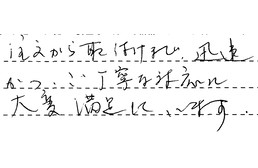 注文から取付けまで、迅速
かつ、ご丁寧な対応に
大変満足しています。